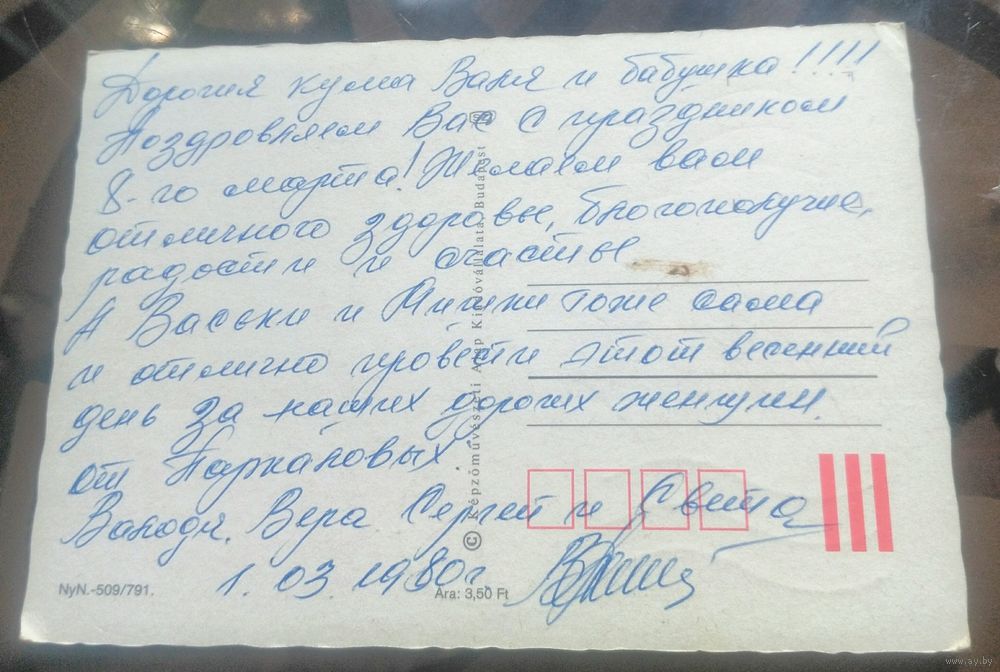 Дорогия кума Ваня и бабушка!!!!
Поздровляем Вас с праздником
8-го марта! Желаем вам
отличного здоровье, благополучие,
радости и счастье
А Васьки и Мишки тоже само
и отлично провести этот весенний
день за наших дорогих женщин.
от Паркановых.
Вера Сергей и Света
1.03.1980г.
© Képzőművészeti Alap Kiadóvállalata, Budapest
NyN.-509/791.
Ára: 3,50 Ft
www.ay.by